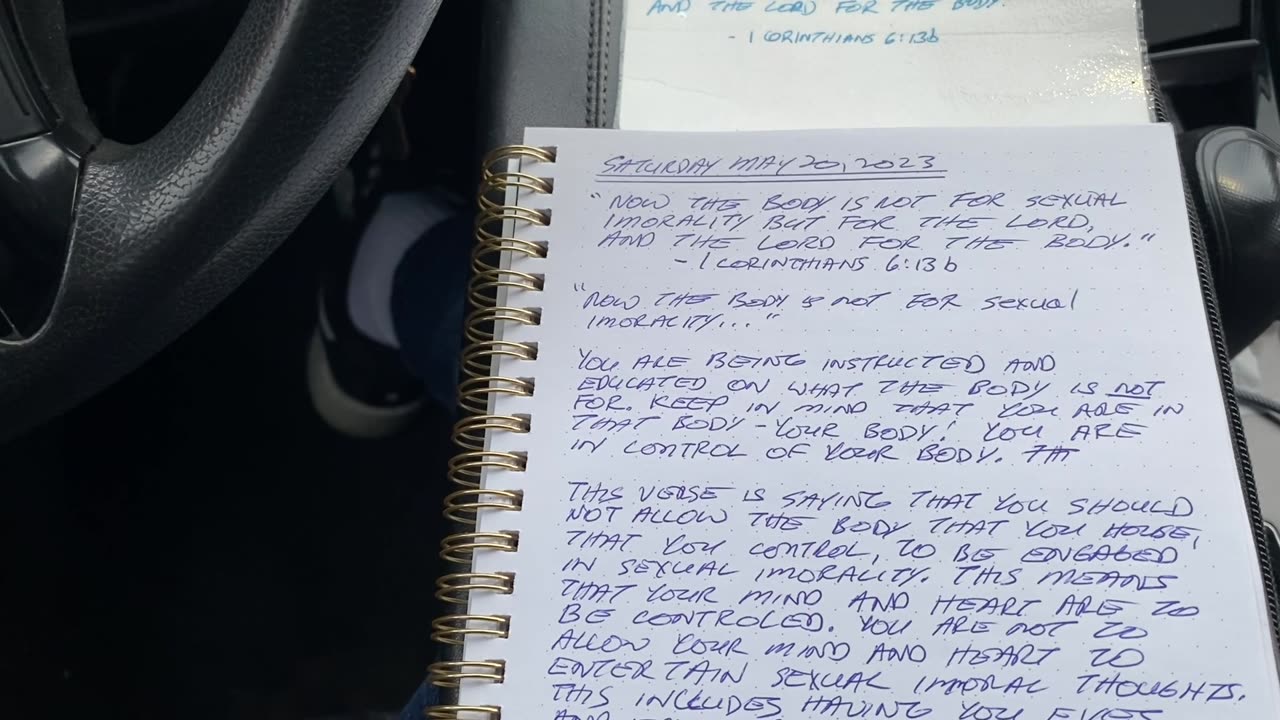 AND THE LORD FOR THE BODY.
- 1 CORINTHIANS 6:13b
SATURDAY MAY 20, 2023
"NOW THE BODY IS NOT FOR SEXUAL
IMORALITY BUT FOR THE LORD,
AND THE LORD FOR THE BODY."
- 1 CORINTHIANS 6:13b
"NOW THE BODY IS NOT FOR SEXUAL
IMORALITY..."
YOU ARE BEING INSTRUCTED AND
EDUCATED ON WHAT THE BODY IS NOT
FOR. KEEP IN MIND THAT YOU ARE IN
THAT BODY - YOUR BODY! YOU ARE
IN CONTROL OF YOUR BODY.
THIS VERSE IS SAYING THAT YOU SHOULD
NOT ALLOW THE BODY THAT YOU HOUSE,
THAT YOU CONTROL, TO BE ENGAGED
IN SEXUAL IMORALITY. THIS MEANS
THAT YOUR MIND AND HEART ARE TO
BE CONTROLED. YOU ARE NOT TO
ALLOW YOUR MIND AND HEART TO
ENTERTAIN SEXUAL IMMORAL THOUGHTS.
THIS INCLUDES HAVING YOU EYES
AND